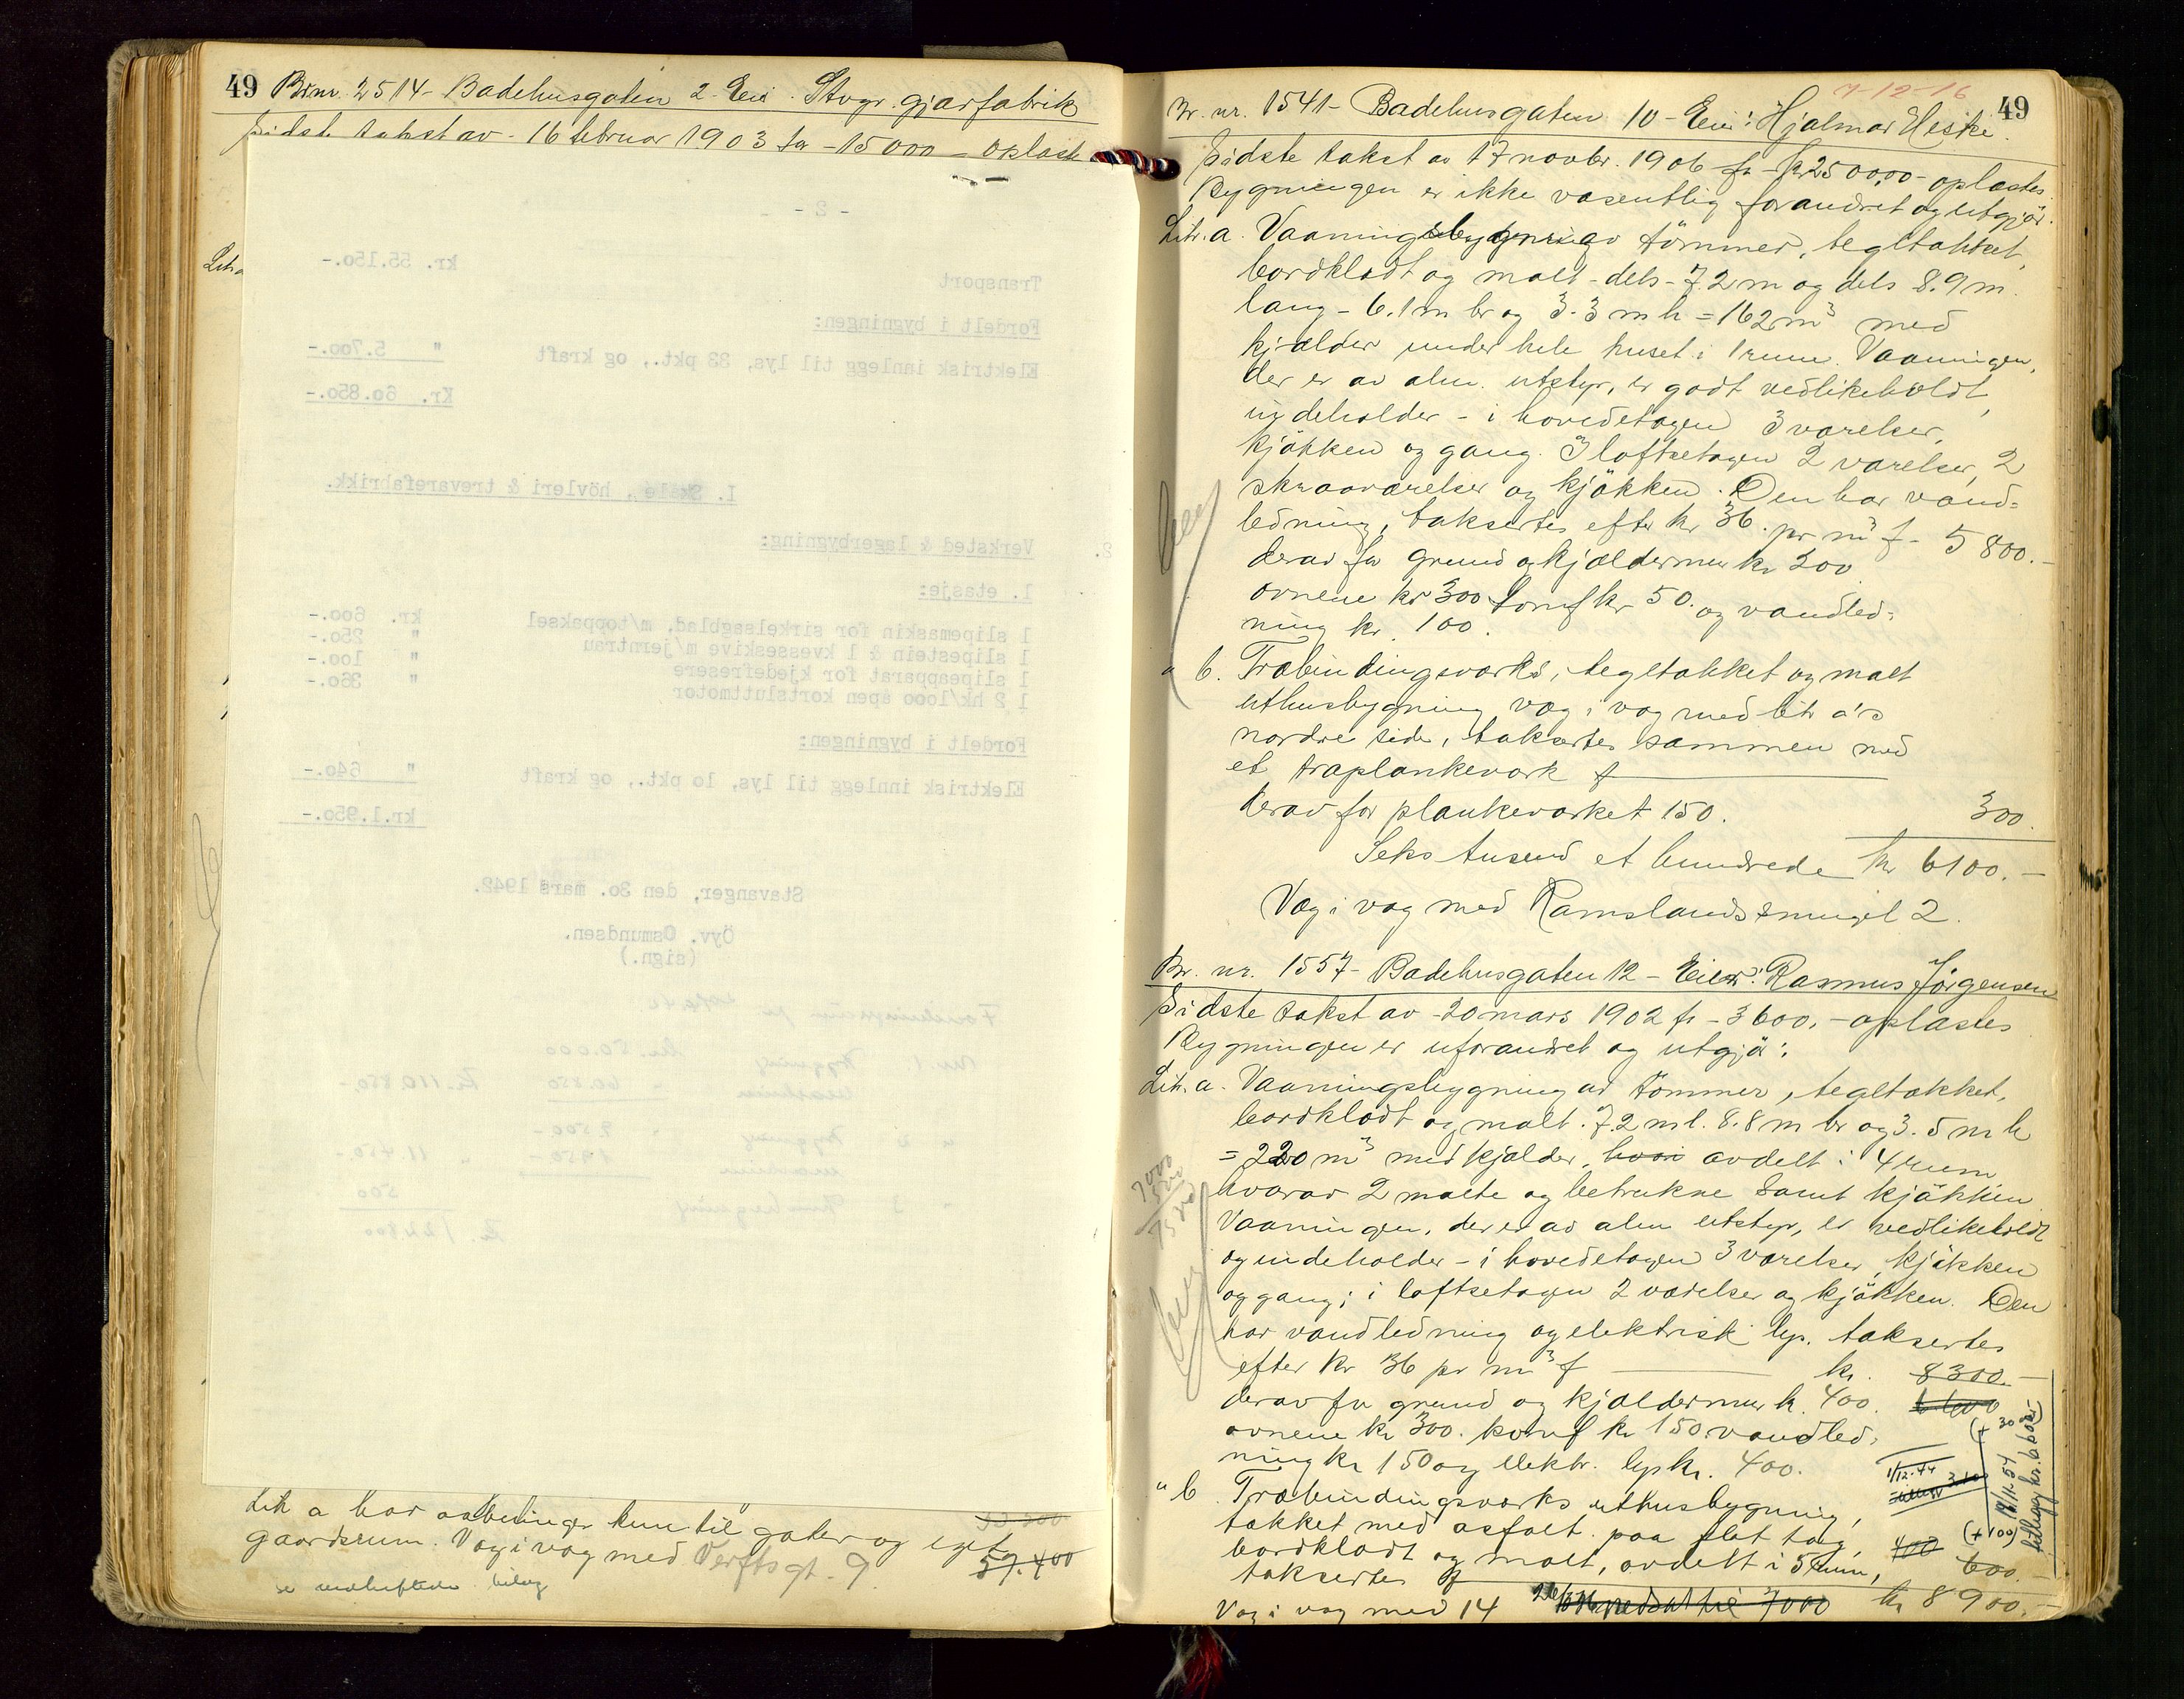 49 Br.nr. 2514 - Badehusgaten 2 - Eier: Stvgr. gjærfabrik
Sidste takst av - 16 februar 1903 for - 15000 - oplæst
- 2 -
Transport kr. 55.150.-
Fordelt i bygningen:
Elektrisk innlegg til lys, 33 pkt., og kraft " 5.700.-
Kr. 60.850.-
Lit. a
I. Skåle, hövleri & trevarefabrikk.
2. Verksted & lagerbygning:
1. etasje:
1 slipemaskin for sirkelsagblad, m/toppaksel kr. 600.-
1 slipestein & 1 kvesseskive m/jerntrau " 250.-
1 slipeapparat for kjedefresere " 100.-
1 2 hk/1000 åpen kortsluttmotor " 360.-
Fordelt i bygningen:
Elektrisk innlegg til lys, 10 pkt., og kraft " 640.-
kr.1.950.-
Stavanger, den 30. mars 1942.
Öyv. Osmundsen.
(sign.)
Nr. 1 bygning kr. 50.000
maskiner " 60.850 kr. 110.850.-
" 2 bygning " 9.500 -
maskiner 1.950 - " 11.450.-
" 3 500
Lit a har aabninger kun til gaten og eget
gaardsrum. Væg i væg med Verftsgt. 9.
57.400
se vedheftede bilag
7-12-16
49
Br. nr. 1541 - Badehusgaten 10 - Eier: Hjalmar Heske.
Sidste takst av 17 novbr. 1906 for kr 2500,00 - oplæstes
Bygningen er ikke væsentlig forandret og utgjør.
Litr. a. Vaaningsbygning av tømmer, tegltækket,
bordklædt og malt - dels - 7.2 m og dels 8.9 m.
lang - 6.1 m br og 3.3 m h = 162 m³ med
kjælder under hele huset i 1 rum. Vaaningen,
der er av alm. utstyr, er godt vedlikeholdt,
indeholder - i hovedetagen 3 værelser,
kjøkken og gang. I loftsetagen 2 værelser, 2
skraaværelser og kjøkken. Den har vand-
ledning, taksertes efter kr 36. pr m³ f - 5 800.-
derav for grund og kjældermur kr 300
ovnene kr 300 komf kr 50. og vandled-
ning kr. 100.
" b. Træbindingsværks, tegltækket og malt
uthusbygning væg i væg med litr a's
nordre side, taksertes sammen med
et træplankeværk f
derav for plankeværket 150. 300.
Seks tusend et hundrede kr 6100.-
Væg i væg med Ramslandssmuget 2.
Br. nr. 1557 - Badehusgaten 12 - Eier: Rasmus Jørgensen
Sidste takst av - 20 mars 1902 for - 3600.- oplæstes
Bygningen er uforandret og utgjør:
Litr. a. Vaaningsbygning av tømmer, tegltækket,
bordklædt og malt. 7.2 m l. 8.8 m br og 3.5 m h
= 220 m³ med kjælder, hvori avdelt i 4 rum
hvorav 2 malte og betrukne samt kjøkken
Vaaningen, der er av alm utstyr, er vedlikeholdt
og indeholder - i hovedetagen 3 værelser, kjøkken
og gang; i loftsetagen 2 værelser og kjøkken. Den
har vandledning og elektrisk lys. taksertes
efter kr 36 pr m³ f kr. 8300.-
derav for grund og kjældermur k. 400. 6600
ovnene kr 300. komf kr 150. vandled-
ning kr 150 og elektr. lys kr. 400.
" b. Træbindingsværks uthusbygning,
tækket med asfalt paa flat tag,
bordklædt og malt, avdelt i 5 rum, 400 (+100)
taksertes f 600.-
1/12.44 tillegg
19/11-54 tillegg kr. 6600.-
Væg i væg med 14 nedsat til 7000 kr 8900.-